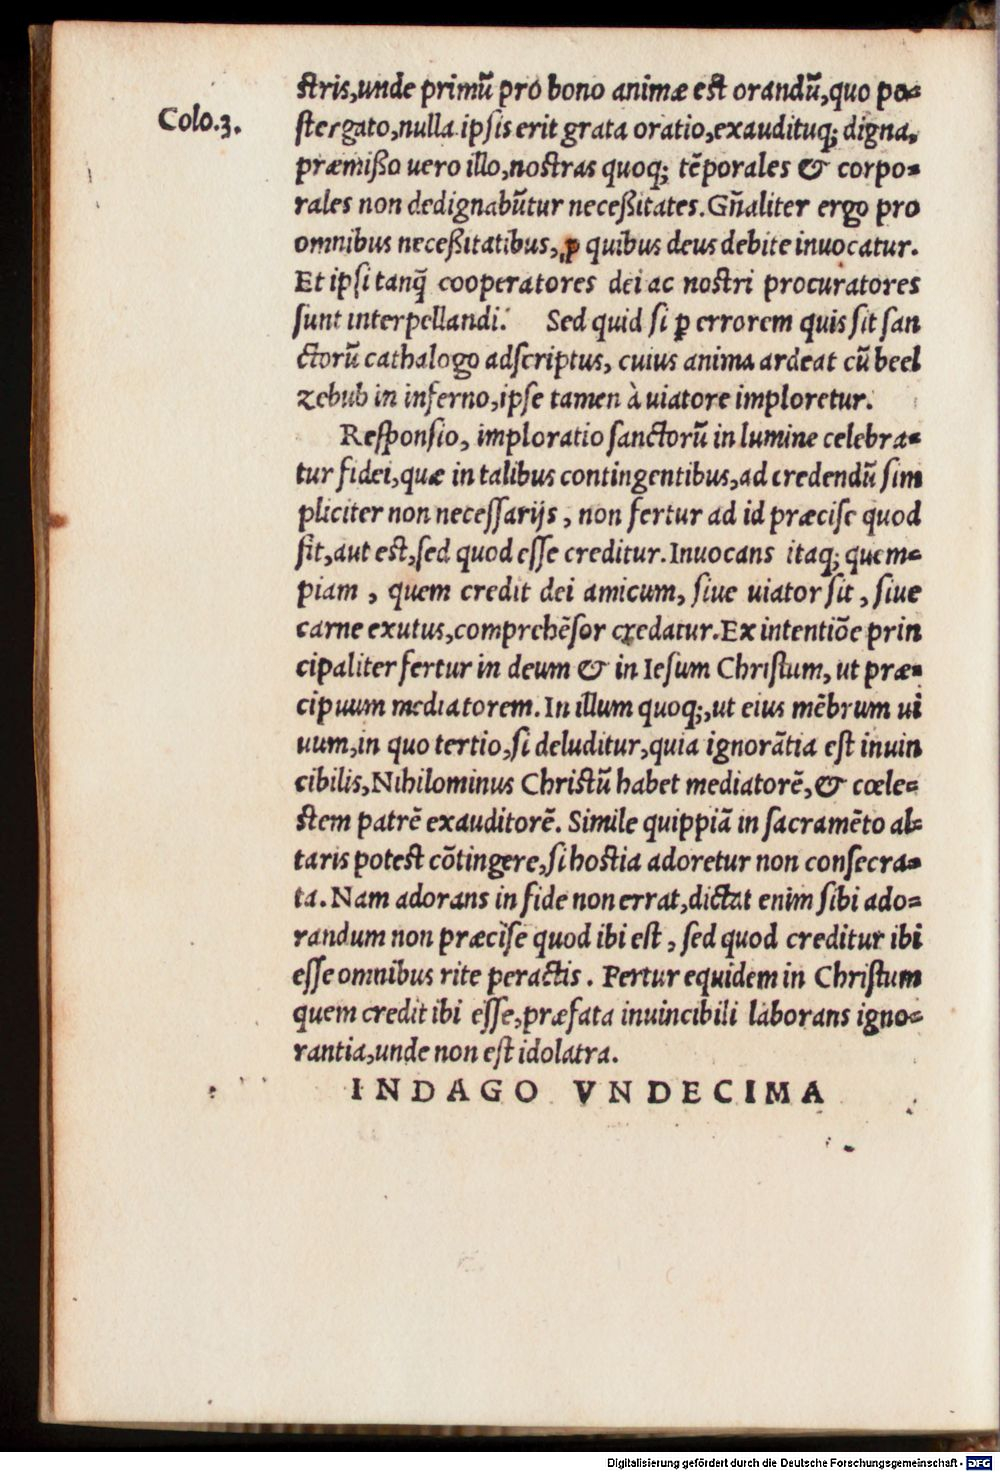 stris,unde primũ pro bono animæ est orandũ,quo po-
Colo.3.
stergato,nulla ipsis erit grata oratio,exaudituq; digna,
præmißo uero illo,nostras quoq; tẽporales & corpo-
rales non dedignabũtur neceßitates.Gñaliter ergo pro
omnibus neceßitatibus, ꝓ quibus deus debite inuocatur.
Et ipsi tanq̃ cooperatores dei ac nostri procuratores
sunt interpellandi. Sed quid si ꝑ errorem quis sit san
ctorũ cathalogo adscriptus, cuius anima ardeat cũ beel
zebub in inferno,ipse tamen à uiatore imploretur.
Responsio, imploratio sanctorũ in lumine celebra-
tur fidei,quæ in talibus contingentibus,ad credendũ sim
pliciter non necessarijs, non fertur ad id præcise quod
sit,aut est,sed quod esse creditur.Inuocans itaq; quem-
piam, quem credit dei amicum, siue uiator sit, siue
carne exutus,comprehẽsor credatur.Ex intentiõe prin
cipaliter fertur in deum & in Iesum Christum, ut præ-
cipuum mediatorem.In illum quoq;,ut eius mẽbrum ui
uum,in quo tertio,si deluditur,quia ignorãtia est inuin
cibilis,Nihilominus Christũ habet mediatorẽ,& cœle-
stem patrẽ exauditorẽ. Simile quippiã in sacramẽto al-
taris potest cõtingere,si hostia adoretur non consecra-
ta.Nam adorans in fide non errat,dictat enim sibi ado-
randum non præcise quod ibi est, sed quod creditur ibi
esse omnibus rite peractis. Fertur equidem in Christum
quem credit ibi esse,præfata inuincibili laborans igno-
rantia,unde non est idolatra.
INDAGO VNDECIMA
Digitalisierung gefördert durch die Deutsche Forschungsgemeinschaft - DFG